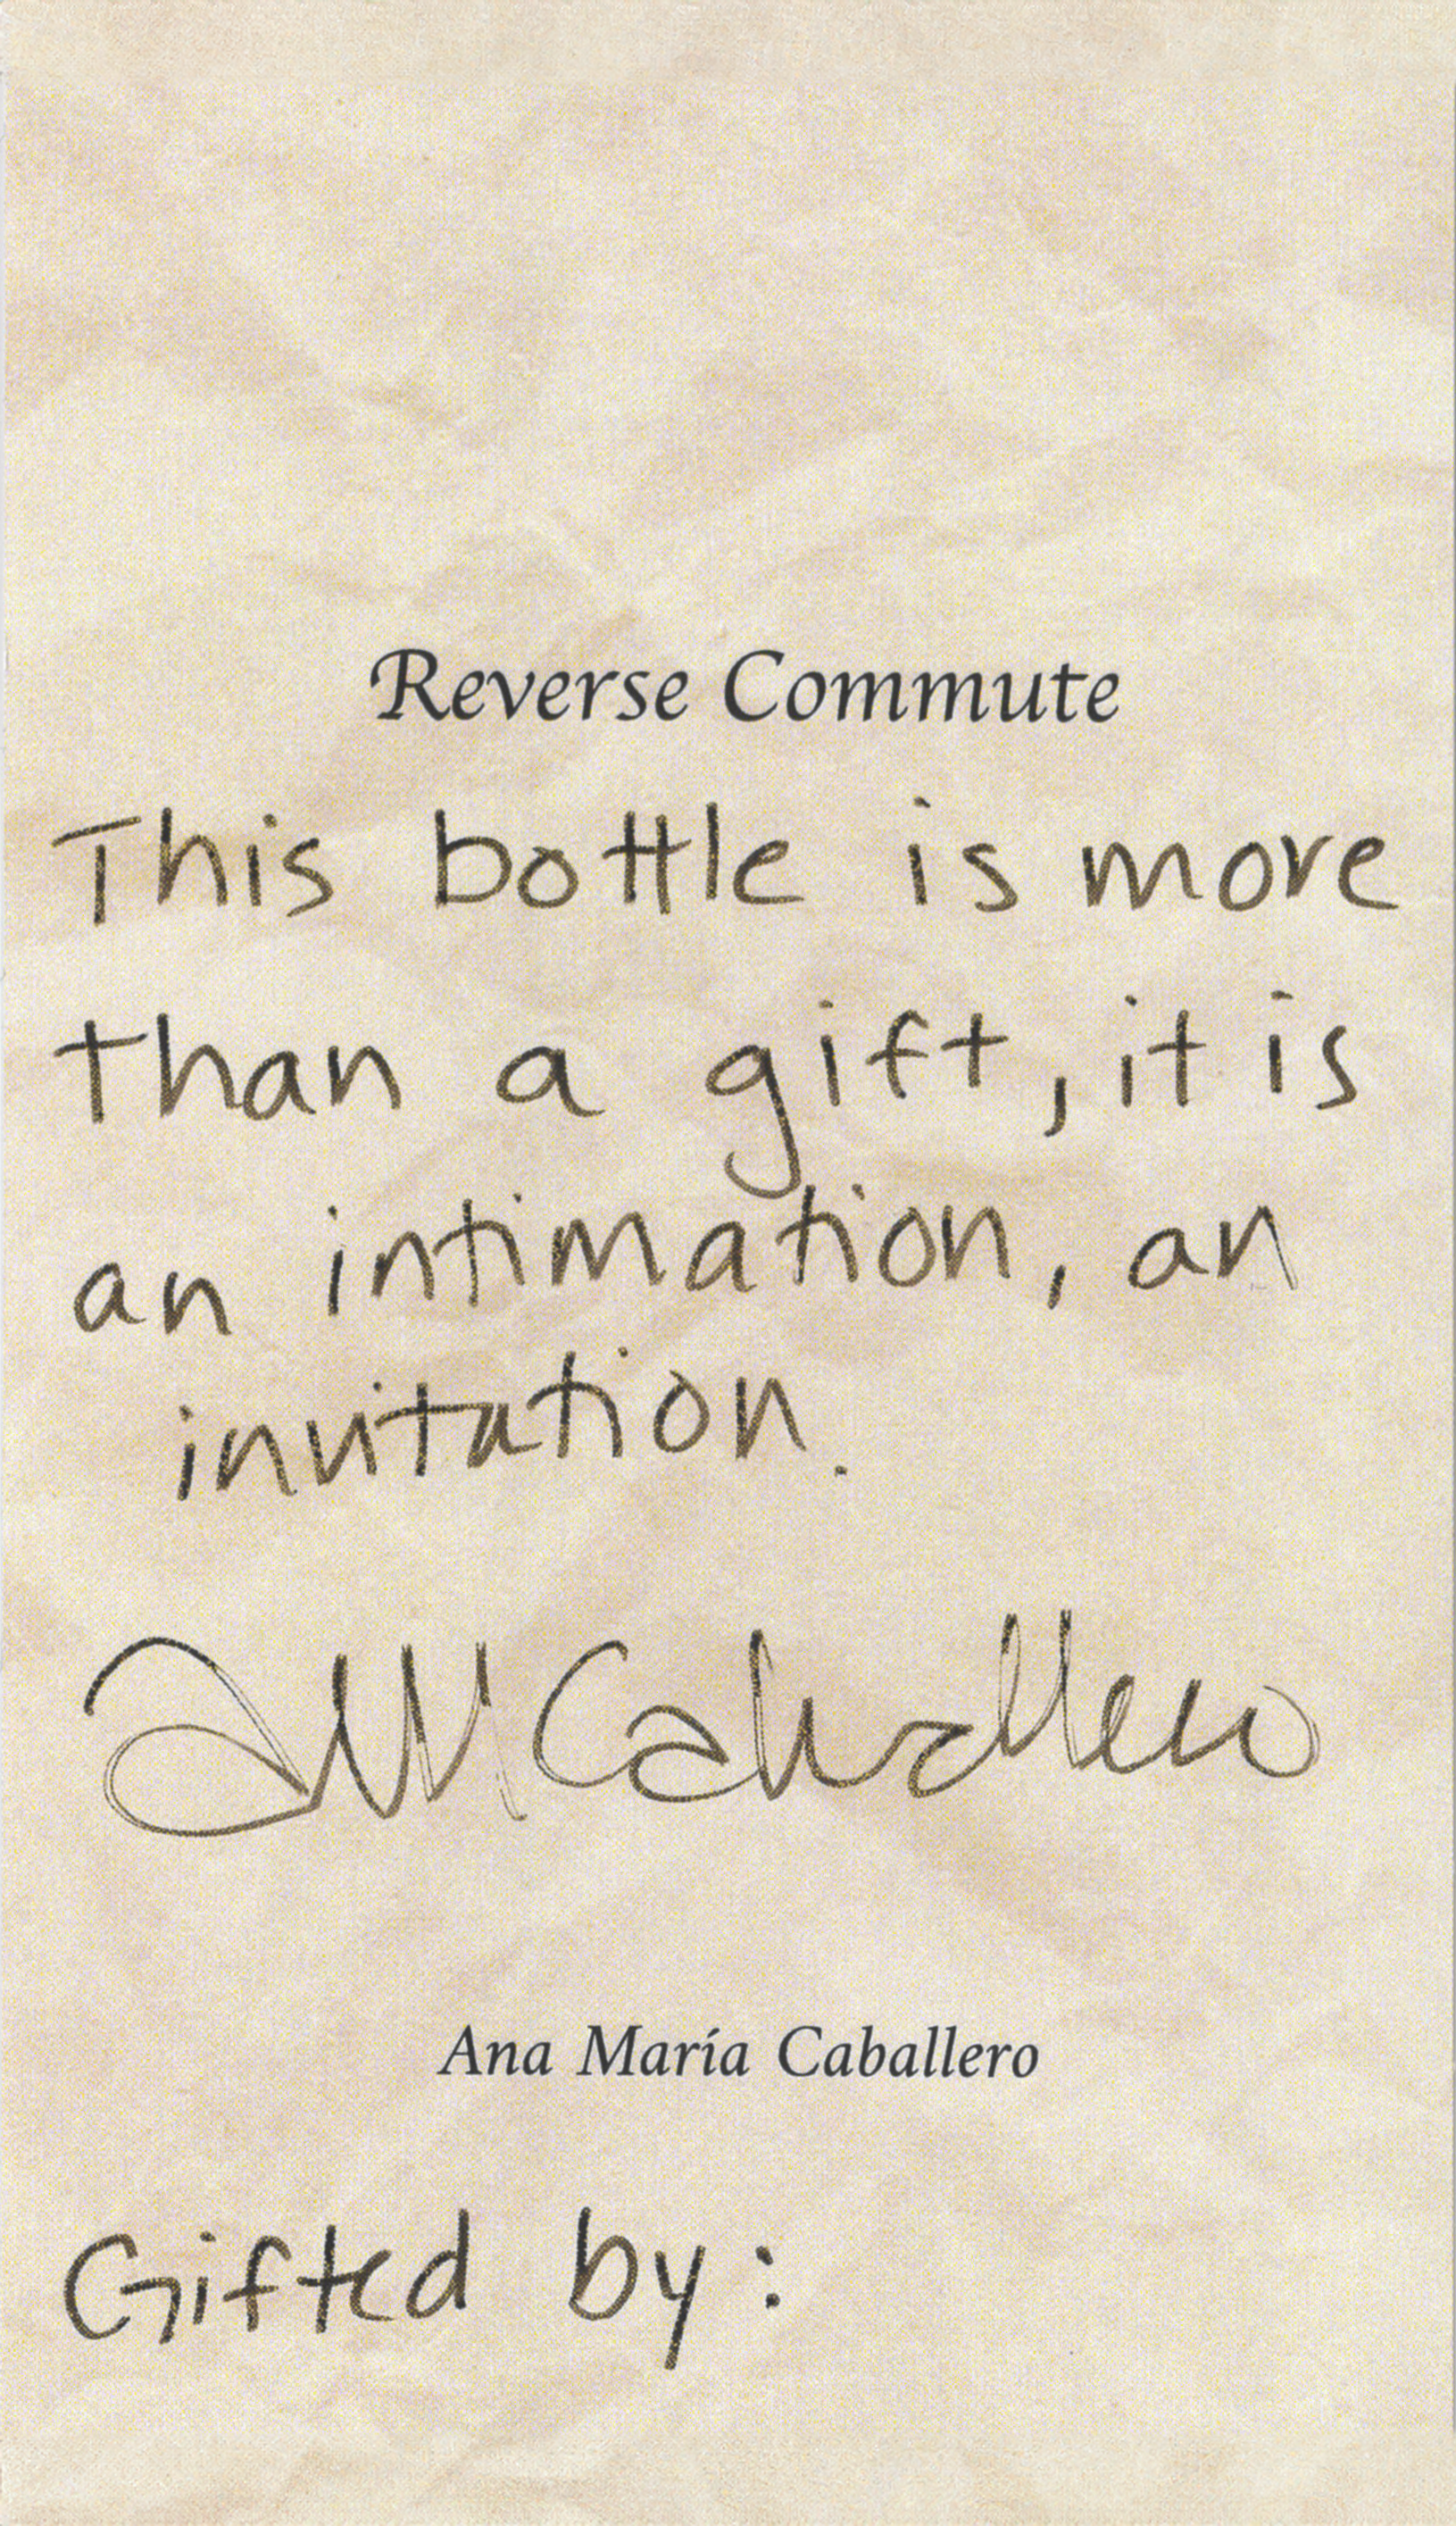 Reverse Commute
This bottle is more
than a gift, it is
an intimation, an
invitation.
AMCaballero
Ana María Caballero
Gifted by: